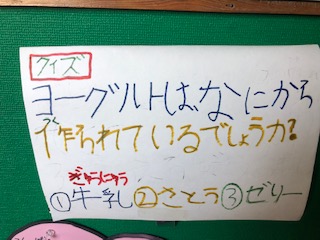 クイズ
ヨーグルトはなにから
作られているでしょうか?
ぎゅうにゅう
①牛乳 ②さとう ③ゼリー